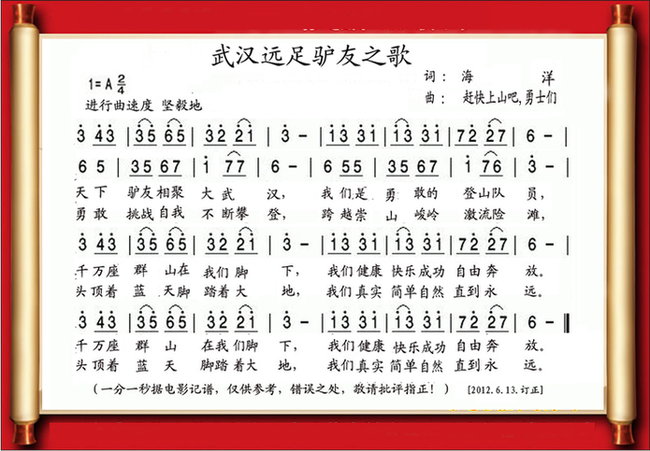 武汉远足驴友之歌
词： 海 洋
1=A 2/4
曲： 赶快上山吧,勇士们
进行曲速度 坚毅地
3 43 | 35 65 | 32 21 | 3 - | 13 31 | 13 31 | 72 27 | 6 - |
6 5 | 35 67 | 1 77 | 6 - | 6 55 | 35 67 | 1 76 | 3 - |
天 下 驴友相聚 大 武 汉， 我 们是 勇 敢的 登山队 员，
勇 敢 挑战自我 不 断攀 登， 跨 越崇 山 峻岭 激流险 滩，
3 43 | 35 65 | 32 21 | 3 - | 13 31 | 13 31 | 72 27 | 6 - |
千 万座 群 山在 我们 脚 下， 我们健康 快乐成功 自由奔 放。
头 顶着 蓝 天脚 踏着大 地， 我们真实 简单自然 直到永 远。
3 43 | 35 65 | 32 21 | 3 - | 13 31 | 13 31 | 72 27 | 6 - ‖
千 万座 群 山 在我们 脚 下， 我们健康 快乐成功 自由奔 放。
头 顶着 蓝 天 脚踏着大 地， 我们真实 简单自然 直到永 远。
（一分一秒据电影记谱，仅供参考，错误之处，敬请批评指正！） [2012.6.13.订正]